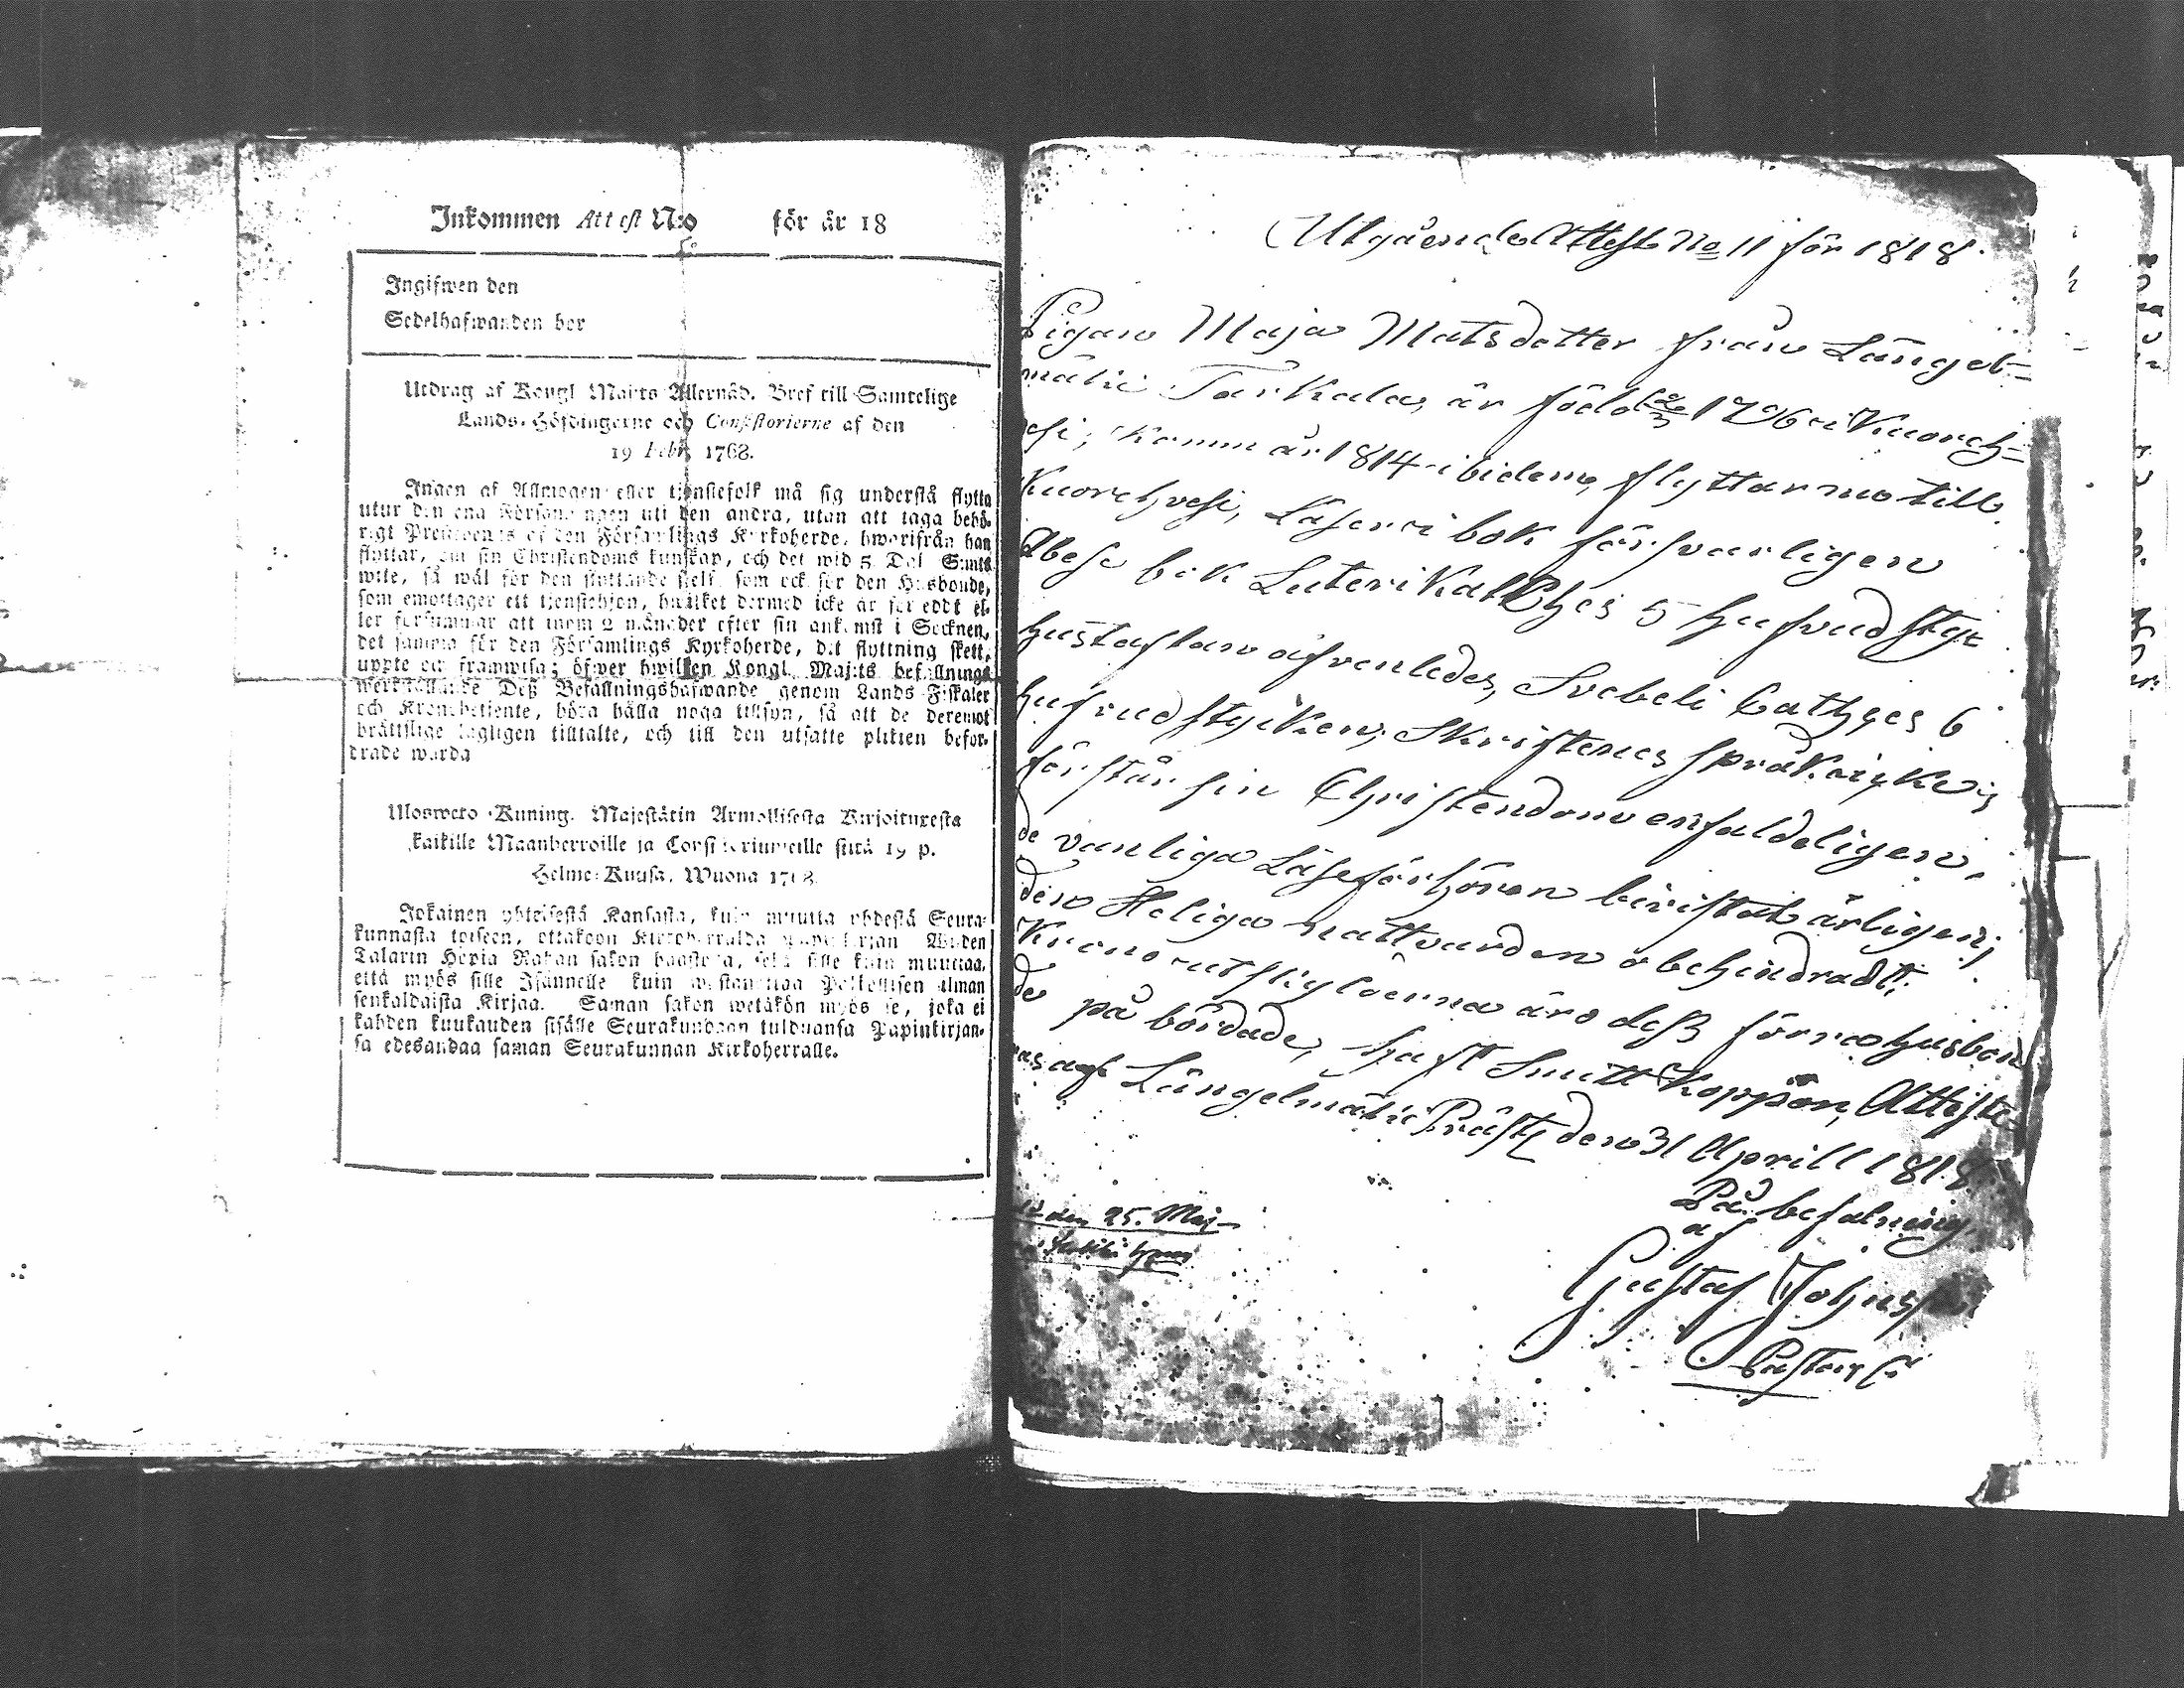 Inkommen Attest N:o för år 18
Ingifwen den
Sedelhafwanden bor
Utdrag af Kongl Maj:ts Allernåd. Bref till Samtelige
Lands-Höfdingarne och Consistorierne af den
19 Febr. 1768.
Ingen af Allmogen eller tjenstefolk må sig understå flytta
utur den ena Församlingen uti den andra, utan att taga behö-
rigt af den Församlings Kyrkoherde, hwarifrån han
flyttar, om sin Christendoms kunskap, och det wid 5 Dal. S:mts
wite, så wäl för den flyttande sielf, som ock för den Husbonde,
som emottager ett tjenstehjon, hwilket dermed icke är försedt el-
ler försummar att inom 2 månader efter sin ankomst i Socknen,
det samma för den Församlings Kyrkoherde, dit flyttning skett,
uppte och framwisa; öfwer hwilken Kongl. Maj:ts befallnings
werkställande Deß Befallningshafwande genom Lands-Fiskaler
och Kronobetjente, böra hålla noga tillsyn, så att de deremot
brättslige lagligen tilltalte, och till den utsatte plikten befor-
drade warda
Ulosweto Kuning. Majestätin Armollisesta Kirjoituxesta
kaikille Maanherroille ja Consistoriumeille siitä 19 p.
Helme-Kuusa. Wuona 1768.
Jokainen yhteisestä Kansasta, kuin muutta yhdestä Seura-
kunnasta toiseen, ottakoon Kirkoherralda Papinkirjan Wiiden
Talarin Hopia Rahan sakon haastolla, sekä sille kuin muuttaa,
että myös sille Isännelle kuin wastanottaa Palkollisen ilman
senkaldaista Kirjaa. Saman sakon wetäkön myös se, joka ei
kahden kuukauden sisälle Seurakundaan tulduansa Papinkirjan-
sa edesandaa saman Seurakunnan Kirkoherralle.
Utgående Attest No 11 för 1818.
Pigan Maja Matsdotter från Längel-
mäki Tarkala, är född 1796 i Kuoreh-
vesi, Komm år 1814 ibidem, flyttar nu till
Kuorehvesi, Läser i bok försvarligen
Abese bok Luteri Katches 5 hufvudstyc
hustaflan äfvenledes, Svebeli Cathges 6
hufvudstycken; Skriftenes språk
förstår sin Christendom enfaldeligen,
de vanliga Läseförhören bivistat årligen;
den Heliga nattvarden obehindradt;
Krono utskylderna äro deß förra husbon
de på bördade, haft Smitt Koppor, Atteste
ras af Längelmäki Präst den 31 Aprill 1818
På befalning
af
Gustaf Johns
den 25. Maj